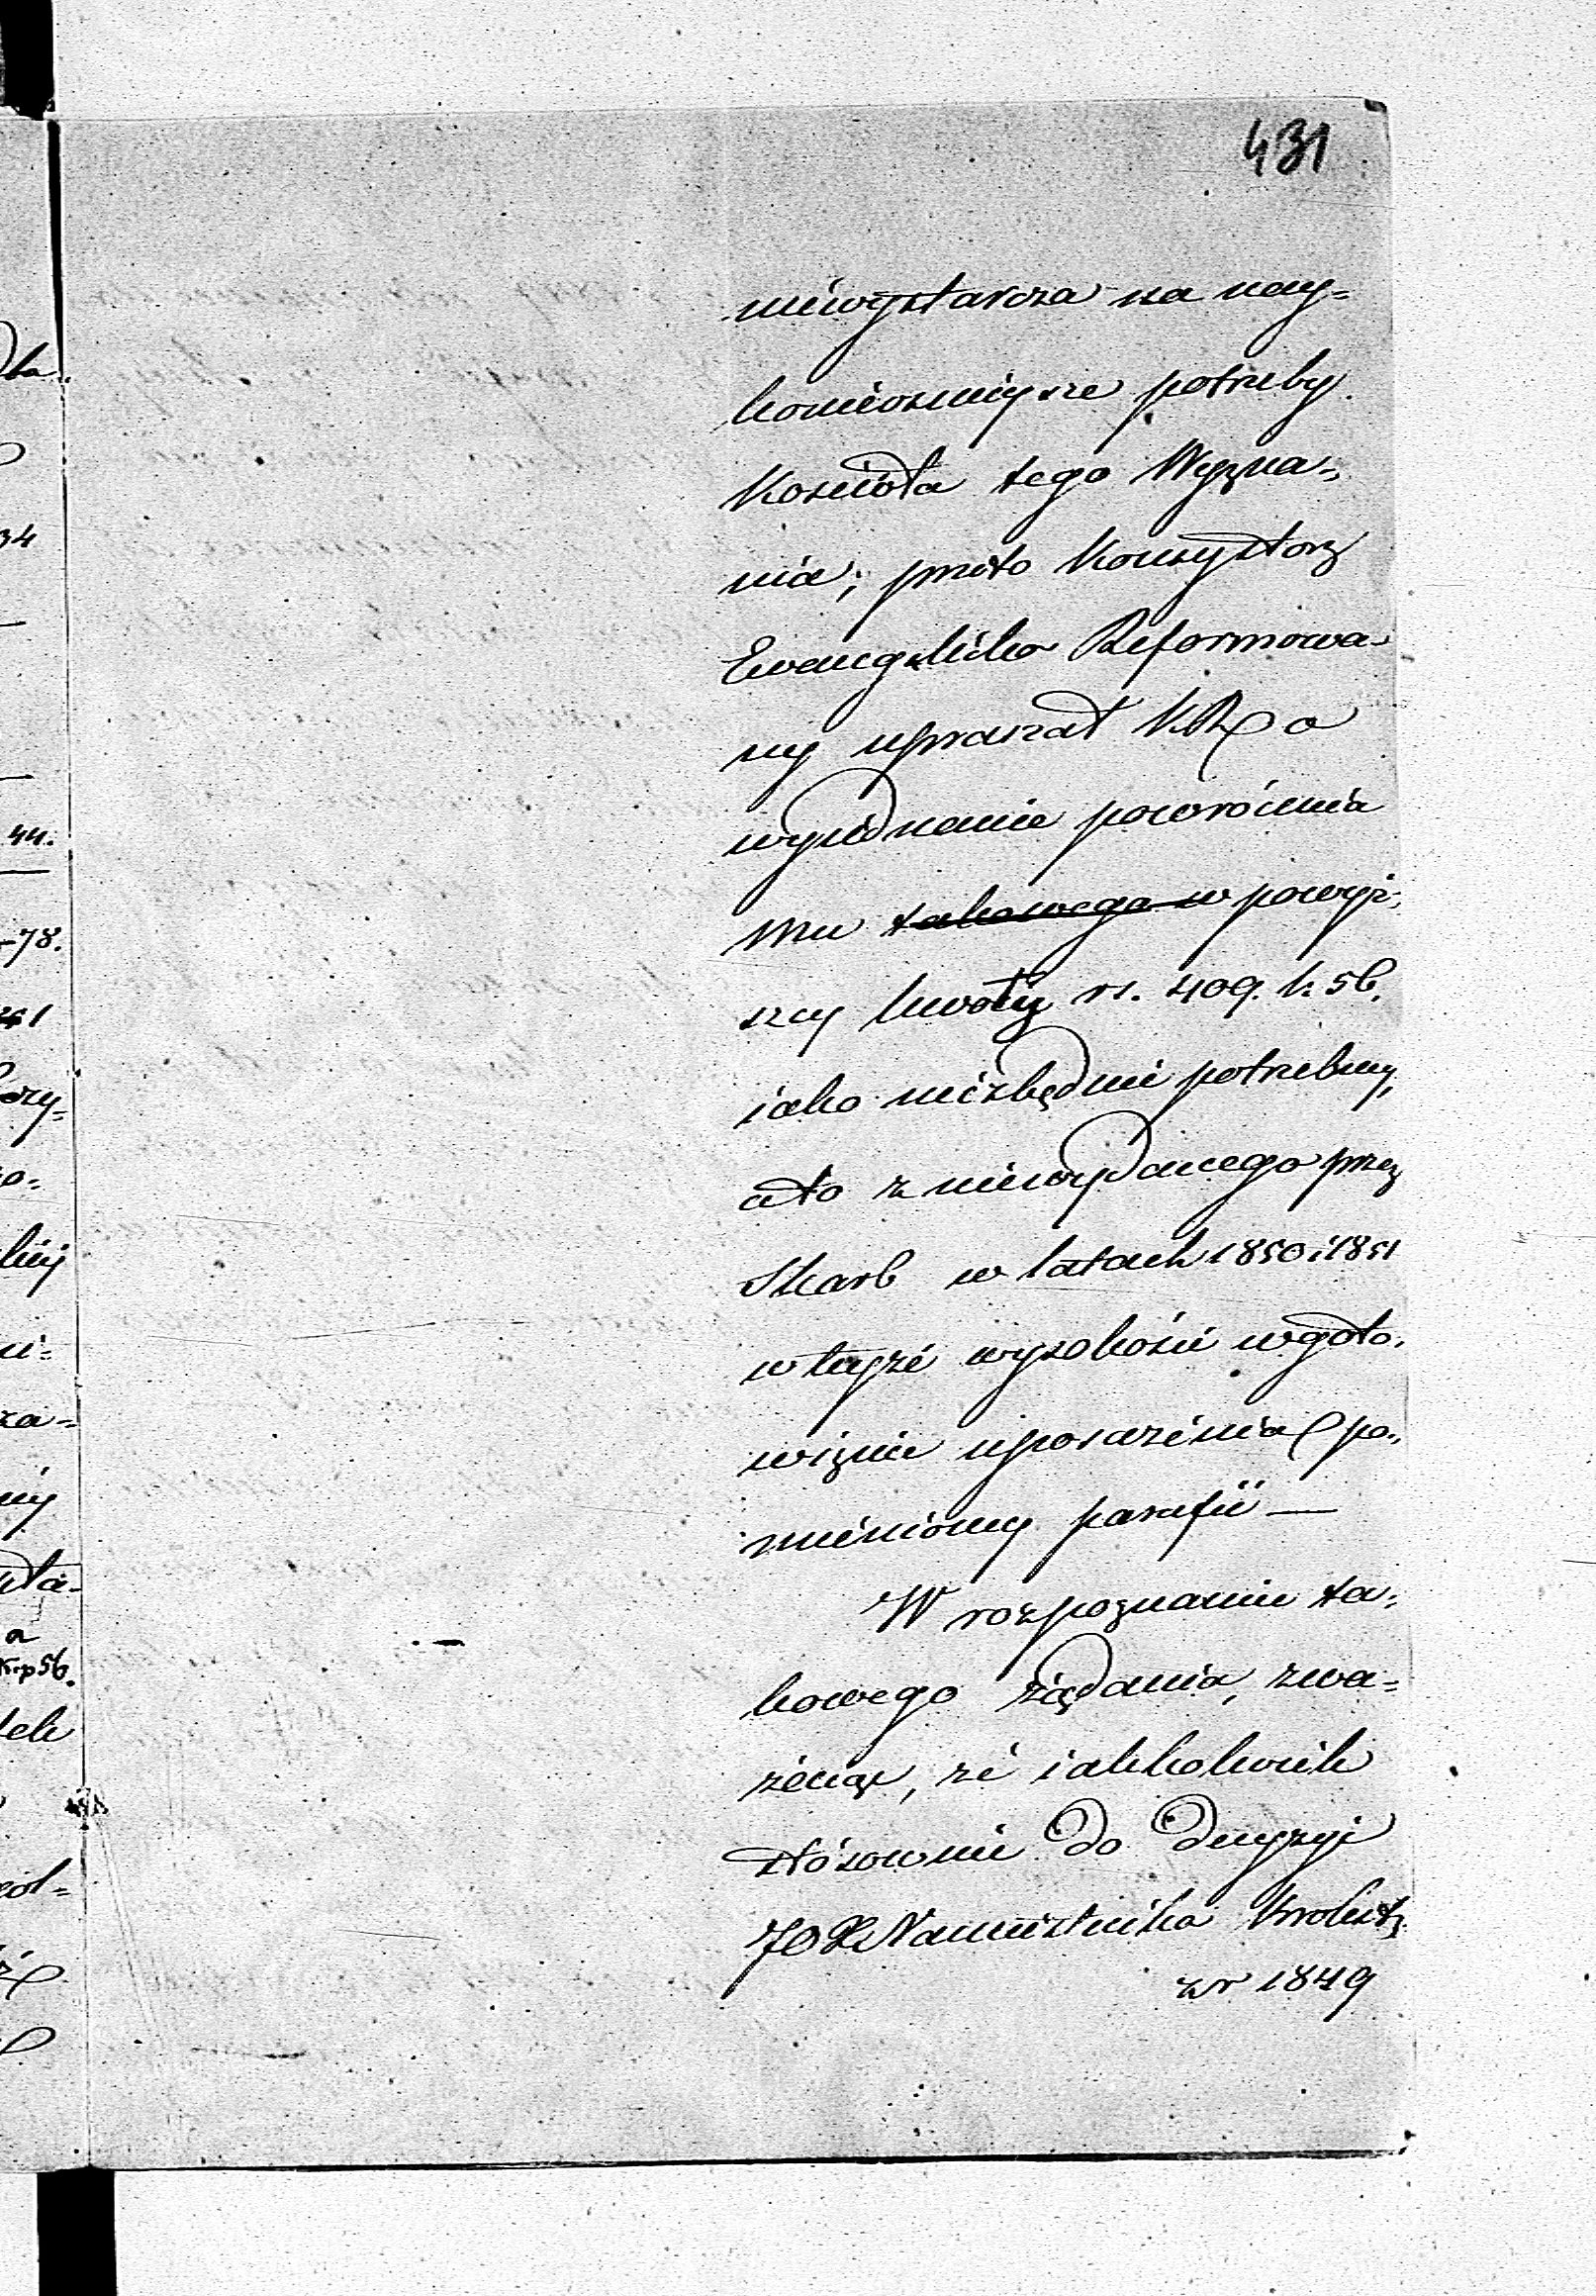 431
niewystarcza na nay=
koniecznieysze potrzeby
Kościoła tego Wyzna=
nia; przeto Konsystorz
Ewangelicko Reformowa=
ny upraszał KR o
wyiednanie powrócenia
Mu takowego w powyż=
szey kwoty rs. 409. k. 56.
iako niezbędnie potrzebney,
a to z niewydanego przez
Skarb w latach 1850 i 1851
w teyże wysokości w goto=
wiznie uposażenia po=
mienioney parafii —
W rozpoznaniu ta=
kowego żądania, zwa=
żając, że iakkolwiek
stósownie do Decyzyi
JO X Namiestnika Królestw
z r 1849
34
44.
-78.
1
kp 56.